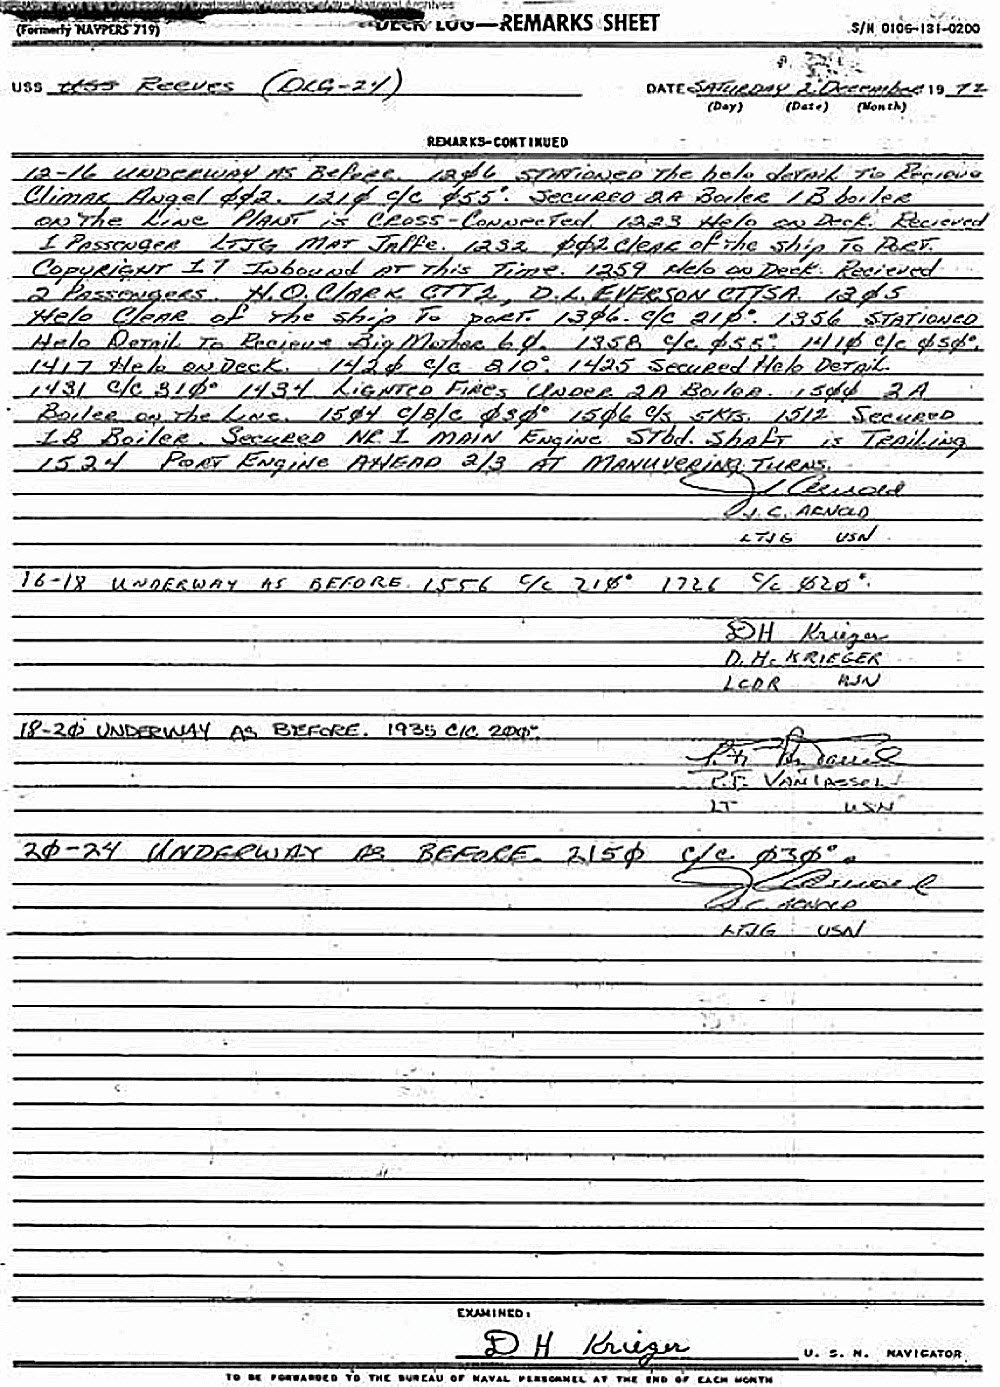 National Archives
(Formerly NAVPERS 719) DECK LOG—REMARKS SHEET S/N 0106-131-0200
USS USS Reeves (DLG-24) DATE SATURDAY 2 December 19 72
(Day) (Date) (Month)
REMARKS-CONTINUED
12-16 UNDERWAY AS BEFORE. 12Ø6 STATIONED The helo detail To Recieve
Climax Angel ØØ2. 121Ø c/c Ø55°. Secured 2A Boiler 1B boiler
on The Line PLANT is CROSS-Connected. 1223 Helo on Deck. Recieved
1 Passenger LTJG MAT Jaffe. 1232 ØØ2 clear of the ship To PORT.
Copyright 17 Inbound AT This Time. 1259 Helo on Deck. Recieved
2 Passengers. H.O. CLARK CTT2, D.L. EVERSON CTTSA. 13Ø5
Helo Clear of The ship To port. 13Ø6. c/c 21Ø°. 1356 STATIONED
Helo Detail To Recieve Big Mother 6Ø. 1358 c/c Ø55°. 141Ø c/c Ø5Ø°.
1417 Helo on Deck. 142Ø c/c 21Ø°. 1425 Secured Helo Detail.
1431 c/c 31Ø° 1434 Lighted Fires Under 2A Boiler. 15ØØ 2A
Boiler on The Line. 15Ø4 c/B/c Ø3Ø° 15Ø6 c/s 5KTS. 1512 Secured
1B Boiler. Secured NR 1 MAIN Engine Stbd. Shaft is Trailing
1524 Port Engine AHEAD 2/3 AT MANUVERING TURNS.
J C Arnold
J. C. ARNOLD
LTJG USN
16-18 UNDERWAY AS BEFORE. 1556 c/c 21Ø° 1726 c/c Ø2Ø°.
DH Krieger
D. H. KRIEGER
LCDR USN
18-2Ø UNDERWAY AS BEFORE. 1935 C/C 2ØØ°.
LT USN
2Ø-24 UNDERWAY AS BEFORE. 215Ø c/c Ø3Ø°.
J C Arnold
J. C. ARNOLD
LTJG USN
EXAMINED:
D H Krieger U. S. N. NAVIGATOR
TO BE FORWARDED TO THE BUREAU OF NAVAL PERSONNEL AT THE END OF EACH MONTH